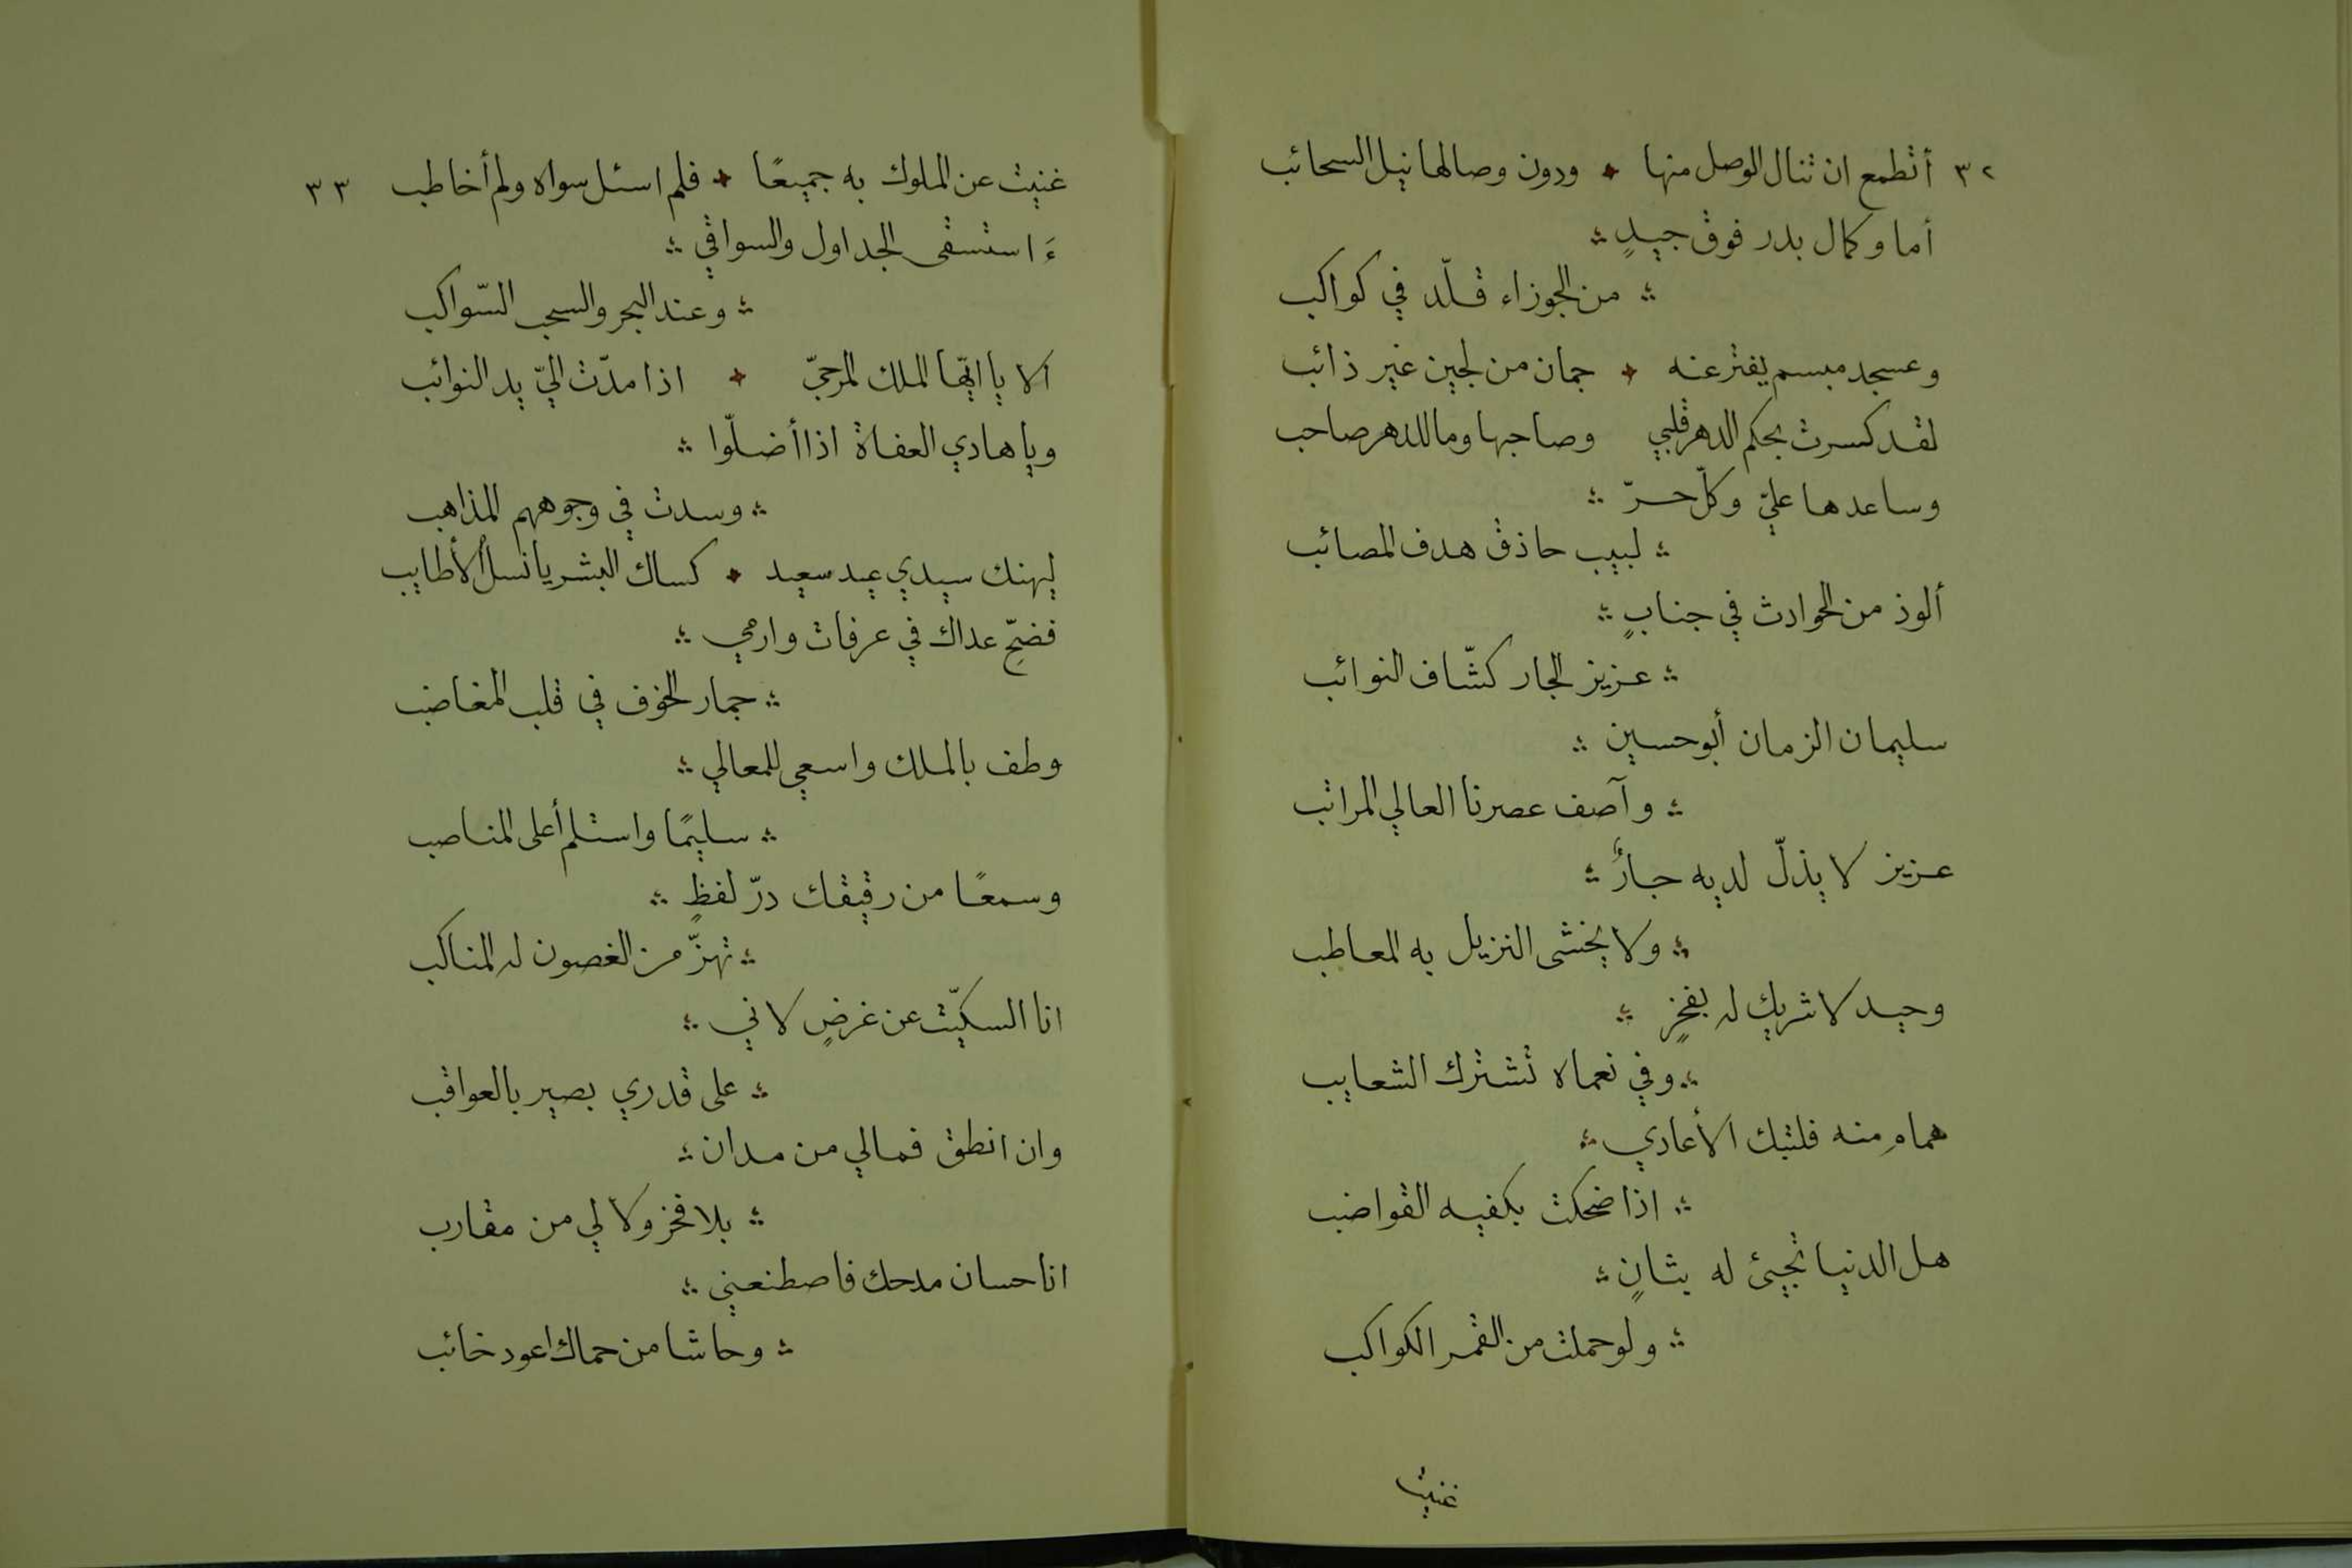 ٣٢ أتطمع ان تنال الوصل منها ودون وصالها نيل السحائب
أما وكمال بدر فوق جيدٍ
من الجوزاء قلّد في كواكب
وعسجد مبسم يفتر عنه جمان من لجين غير ذائب
لقد كسرت بحكم الدهر قلبي وصاحبها وما للدهر صاحب
وساعدها عليّ وكلّ حرّ
لبيب حاذق هدف المصائب
ألوذ من الحوادث في جنابٍ
عزيز الجار كشّاف النوائب
سليمان الزمان أبو حسين
وآصف عصرنا العالي المراتب
عزيز لا يذلّ لديه جارٌ
ولا يخشى النزيل به المعاطب
وحيد لا شريك له بفخرٍ
وفي نعماه تشترك الشعايب
هماهِ منه فلتبك الأعادي
اذا ضحكت بكفيه القواضب
هل الدنيا تجيئ له بثانٍ
ولو حملت من القمر الكواكب
غنيت
غنيت عن الملوك به جميعًا فلم اسئل سواه ولم أخاطب ٣٣
ءَاستسقى الجداول والسواقي
وعند البحر والسحب السّواكب
الا يا ايّها الملك المرجيّ اذا مدّت اليّ يد النوائب
ويا هادي العفاة اذا أضلّوا
وسدت في وجوههم المذاهب
ليهنك سيدي عيد سعيد كساك البشر يا نسل الأطايب
فضحِّ عداك في عرفات وارمي
جمار الخوف في قلب المغاضب
وطف بالملك واسعي للمعالي
سليمًا واستلم أعلى المناصب
وسمعًا من رقيقك درّ لفظٍ
تهزّ من الغصون له المناكب
انا السكيّت عن غرضٍ لاني
على قدري بصير بالعواقب
وان انطق فمالي من مدان
بلا فخر ولا لي من مقارب
انا حسان مدحك فاصطنعني
وحاشا من حماك اعود خائب